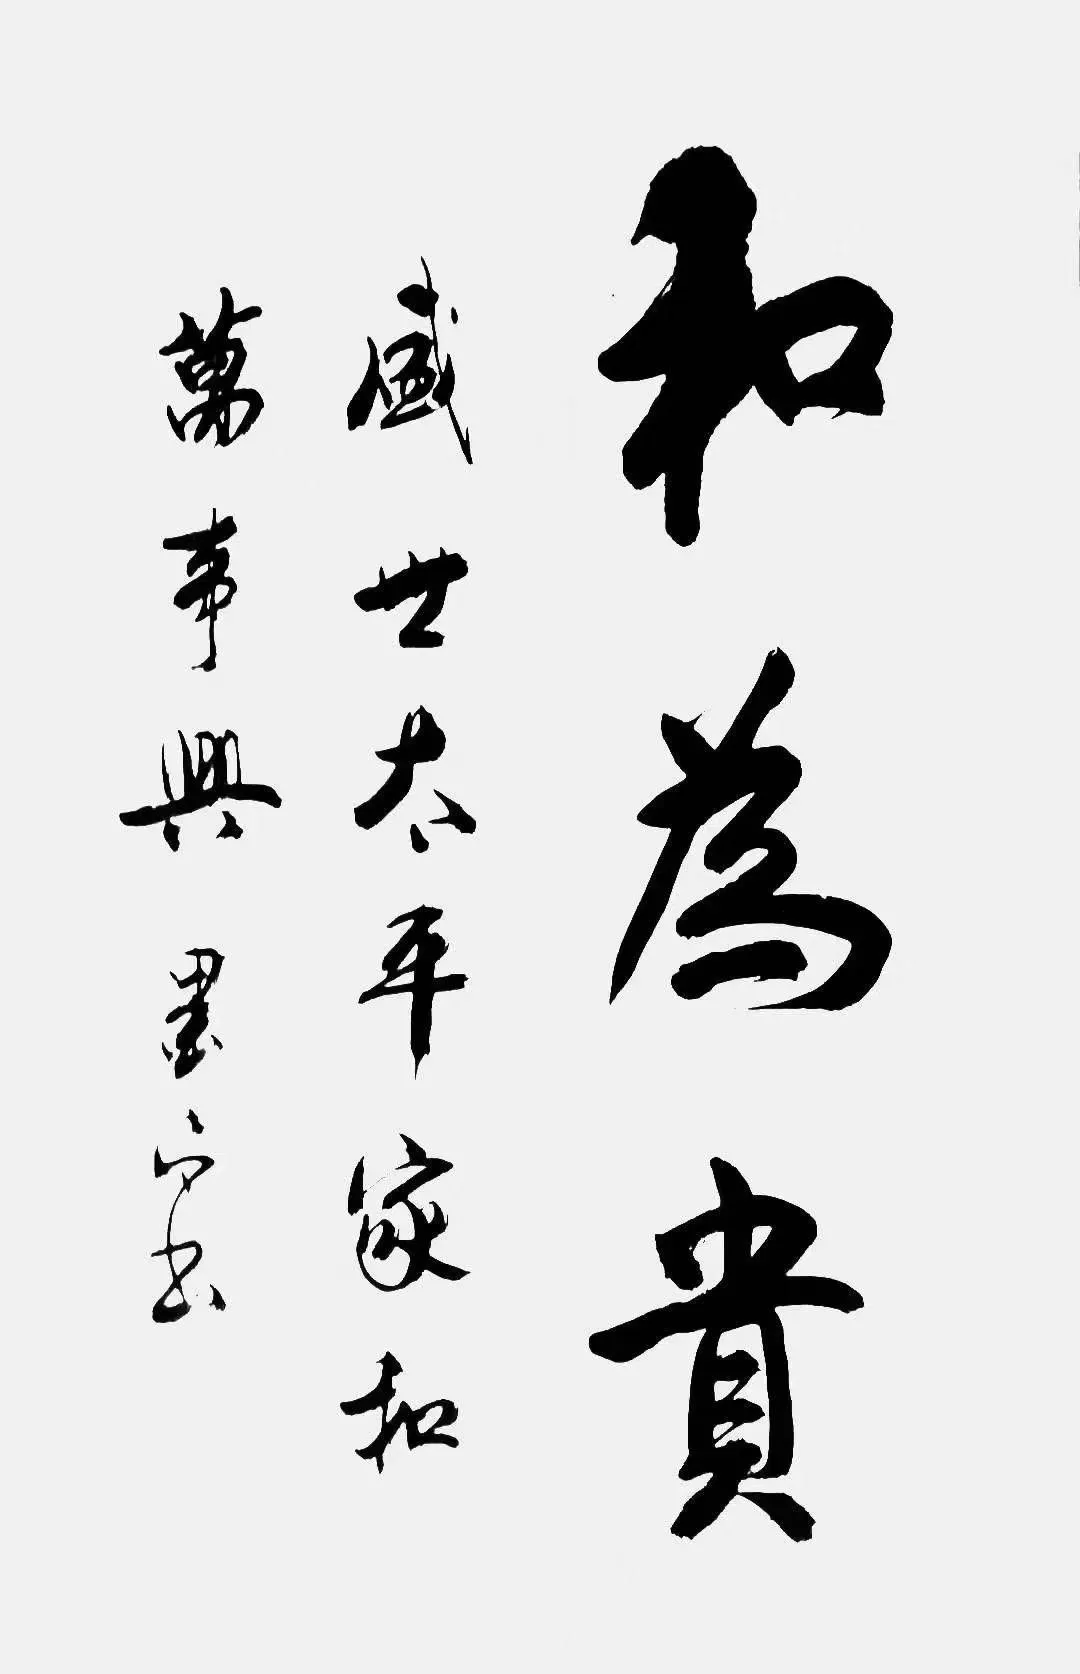 和為貴
盛世太平家和
萬事興 墨 书